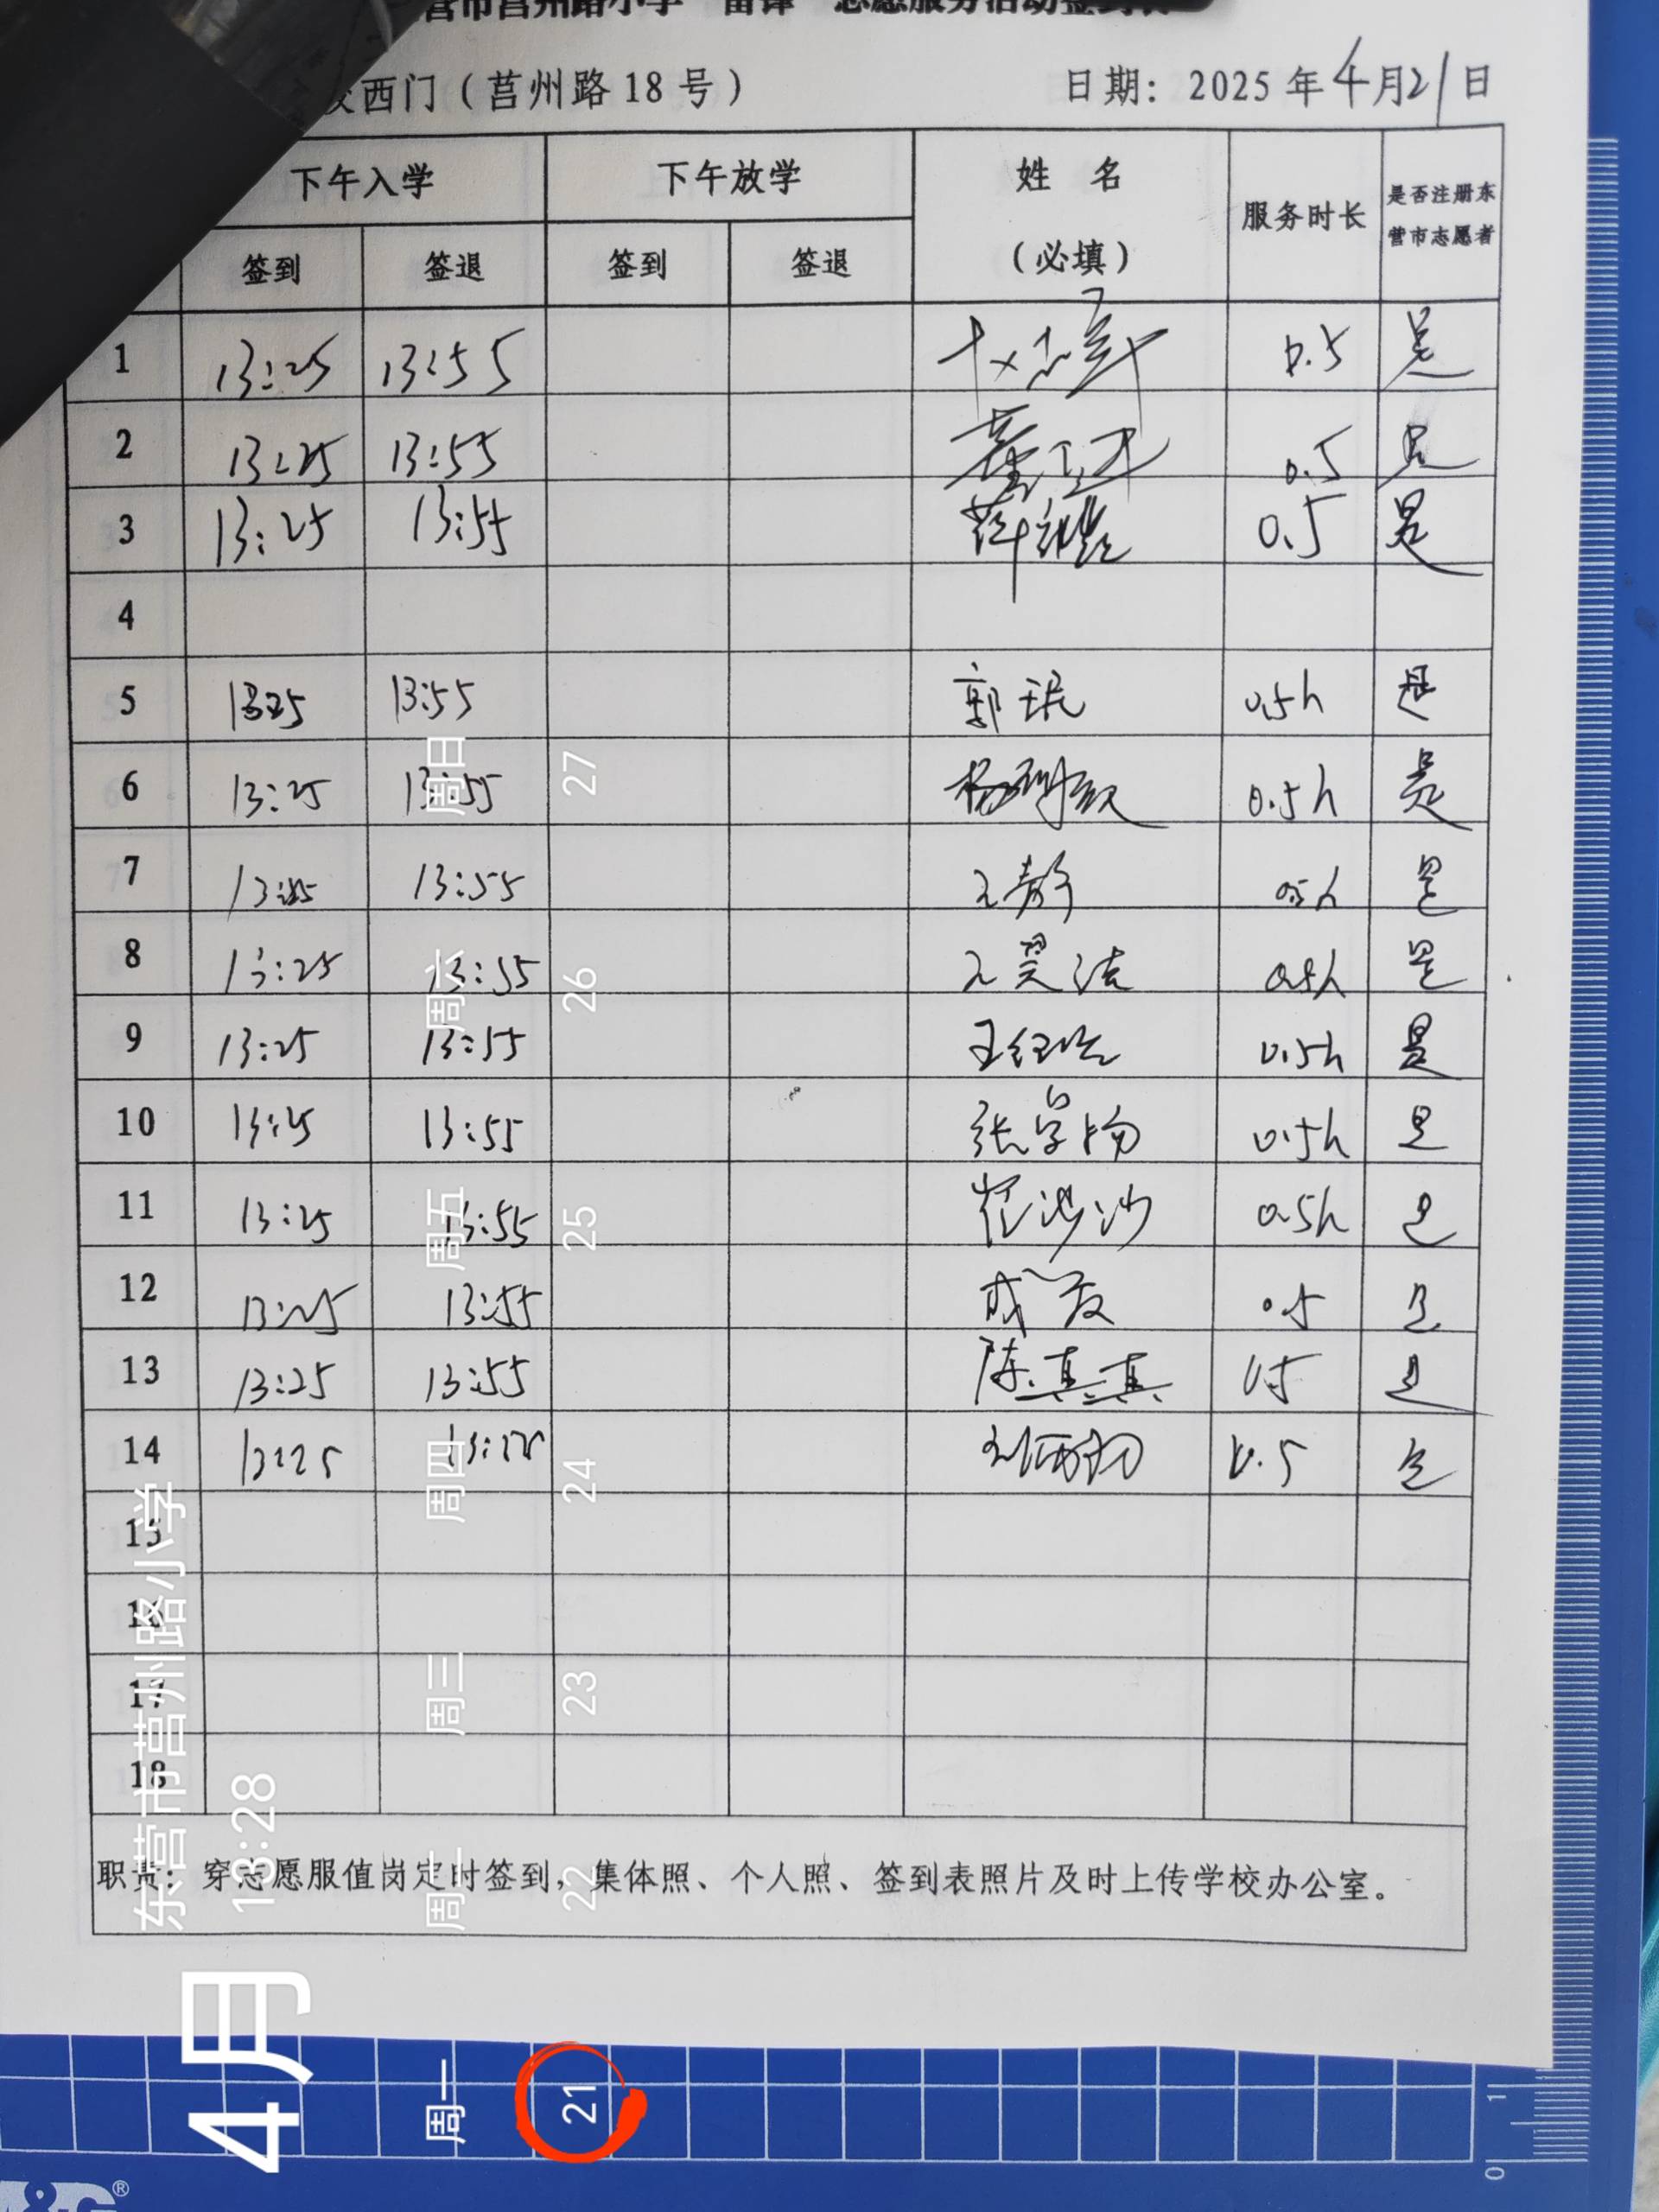 营市莒州路小学“雷锋”志愿服务活动签到表
校西门（莒州路18号） 日期：2025年4月21日
下午入学 下午放学 姓名（必填） 服务时长 是否注册东营市志愿者
签到 签退 签到 签退
1 13:25 13:55 0.5 是
2 13:25 13:55 0.5 是
3 13:25 13:55 薛 0.5 是
4
5 1325 13:55 郭珉 0.5h 是
6 13:25 13:55 杨 0.5h 是
7 13:25 13:55 王静 0.5h 是
8 13:25 13:55 王昊洁 0.5h 是
9 13:25 13:55 王 0.5h 是
10 13:25 13:55 张 0.5h 是
11 13:25 13:55 崔沙沙 0.5h 是
12 13:25 13:55 成 0.5 是
13 13:25 13:55 陈真真 0.5 是
14 13:25 13:55 0.5 是
15
16
17
18
职责：穿志愿服值岗定时签到，集体照、个人照、签到表照片及时上传学校办公室。
东营市莒州路小学
13:28
4月
周一 周二 周三 周四 周五 周六 周日
21 22 23 24 25 26 27
M&G®
0 1